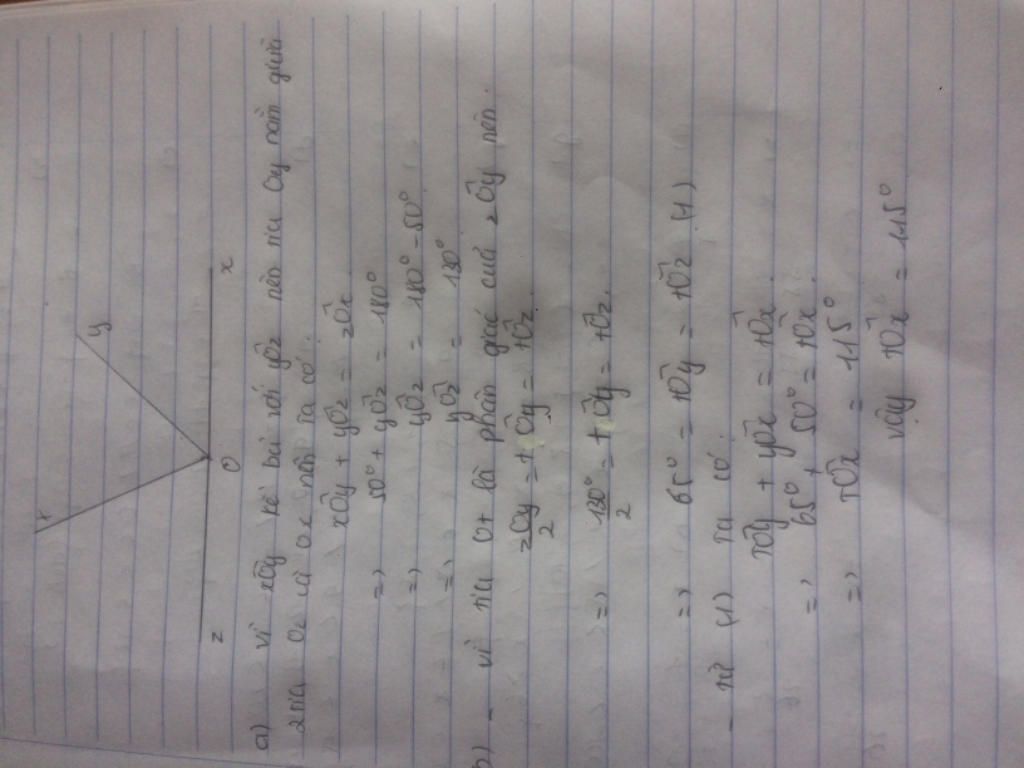 t
y
z
O
x
a) vì xÔy kề bù với yÔz nên tia Oy nằm giữa
2 tia Oz và Ox nên ta có:
xÔy + yÔz = zÔx
=> 50° + yÔz = 180°
=> yÔz = 180° - 50°
=> yÔz = 130°
b) - vì tia Ot là phân giác của zÔy nên.
zÔy/2 = tÔy = tÔz.
=> 130°/2 = tÔy = tÔz.
=> 65° = tÔy = tÔz (1)
- từ (1) ta có
tÔy + yÔx = tÔx.
=> 65° + 50° = tÔx.
=> tÔx = 115°
vậy tÔx = 115°